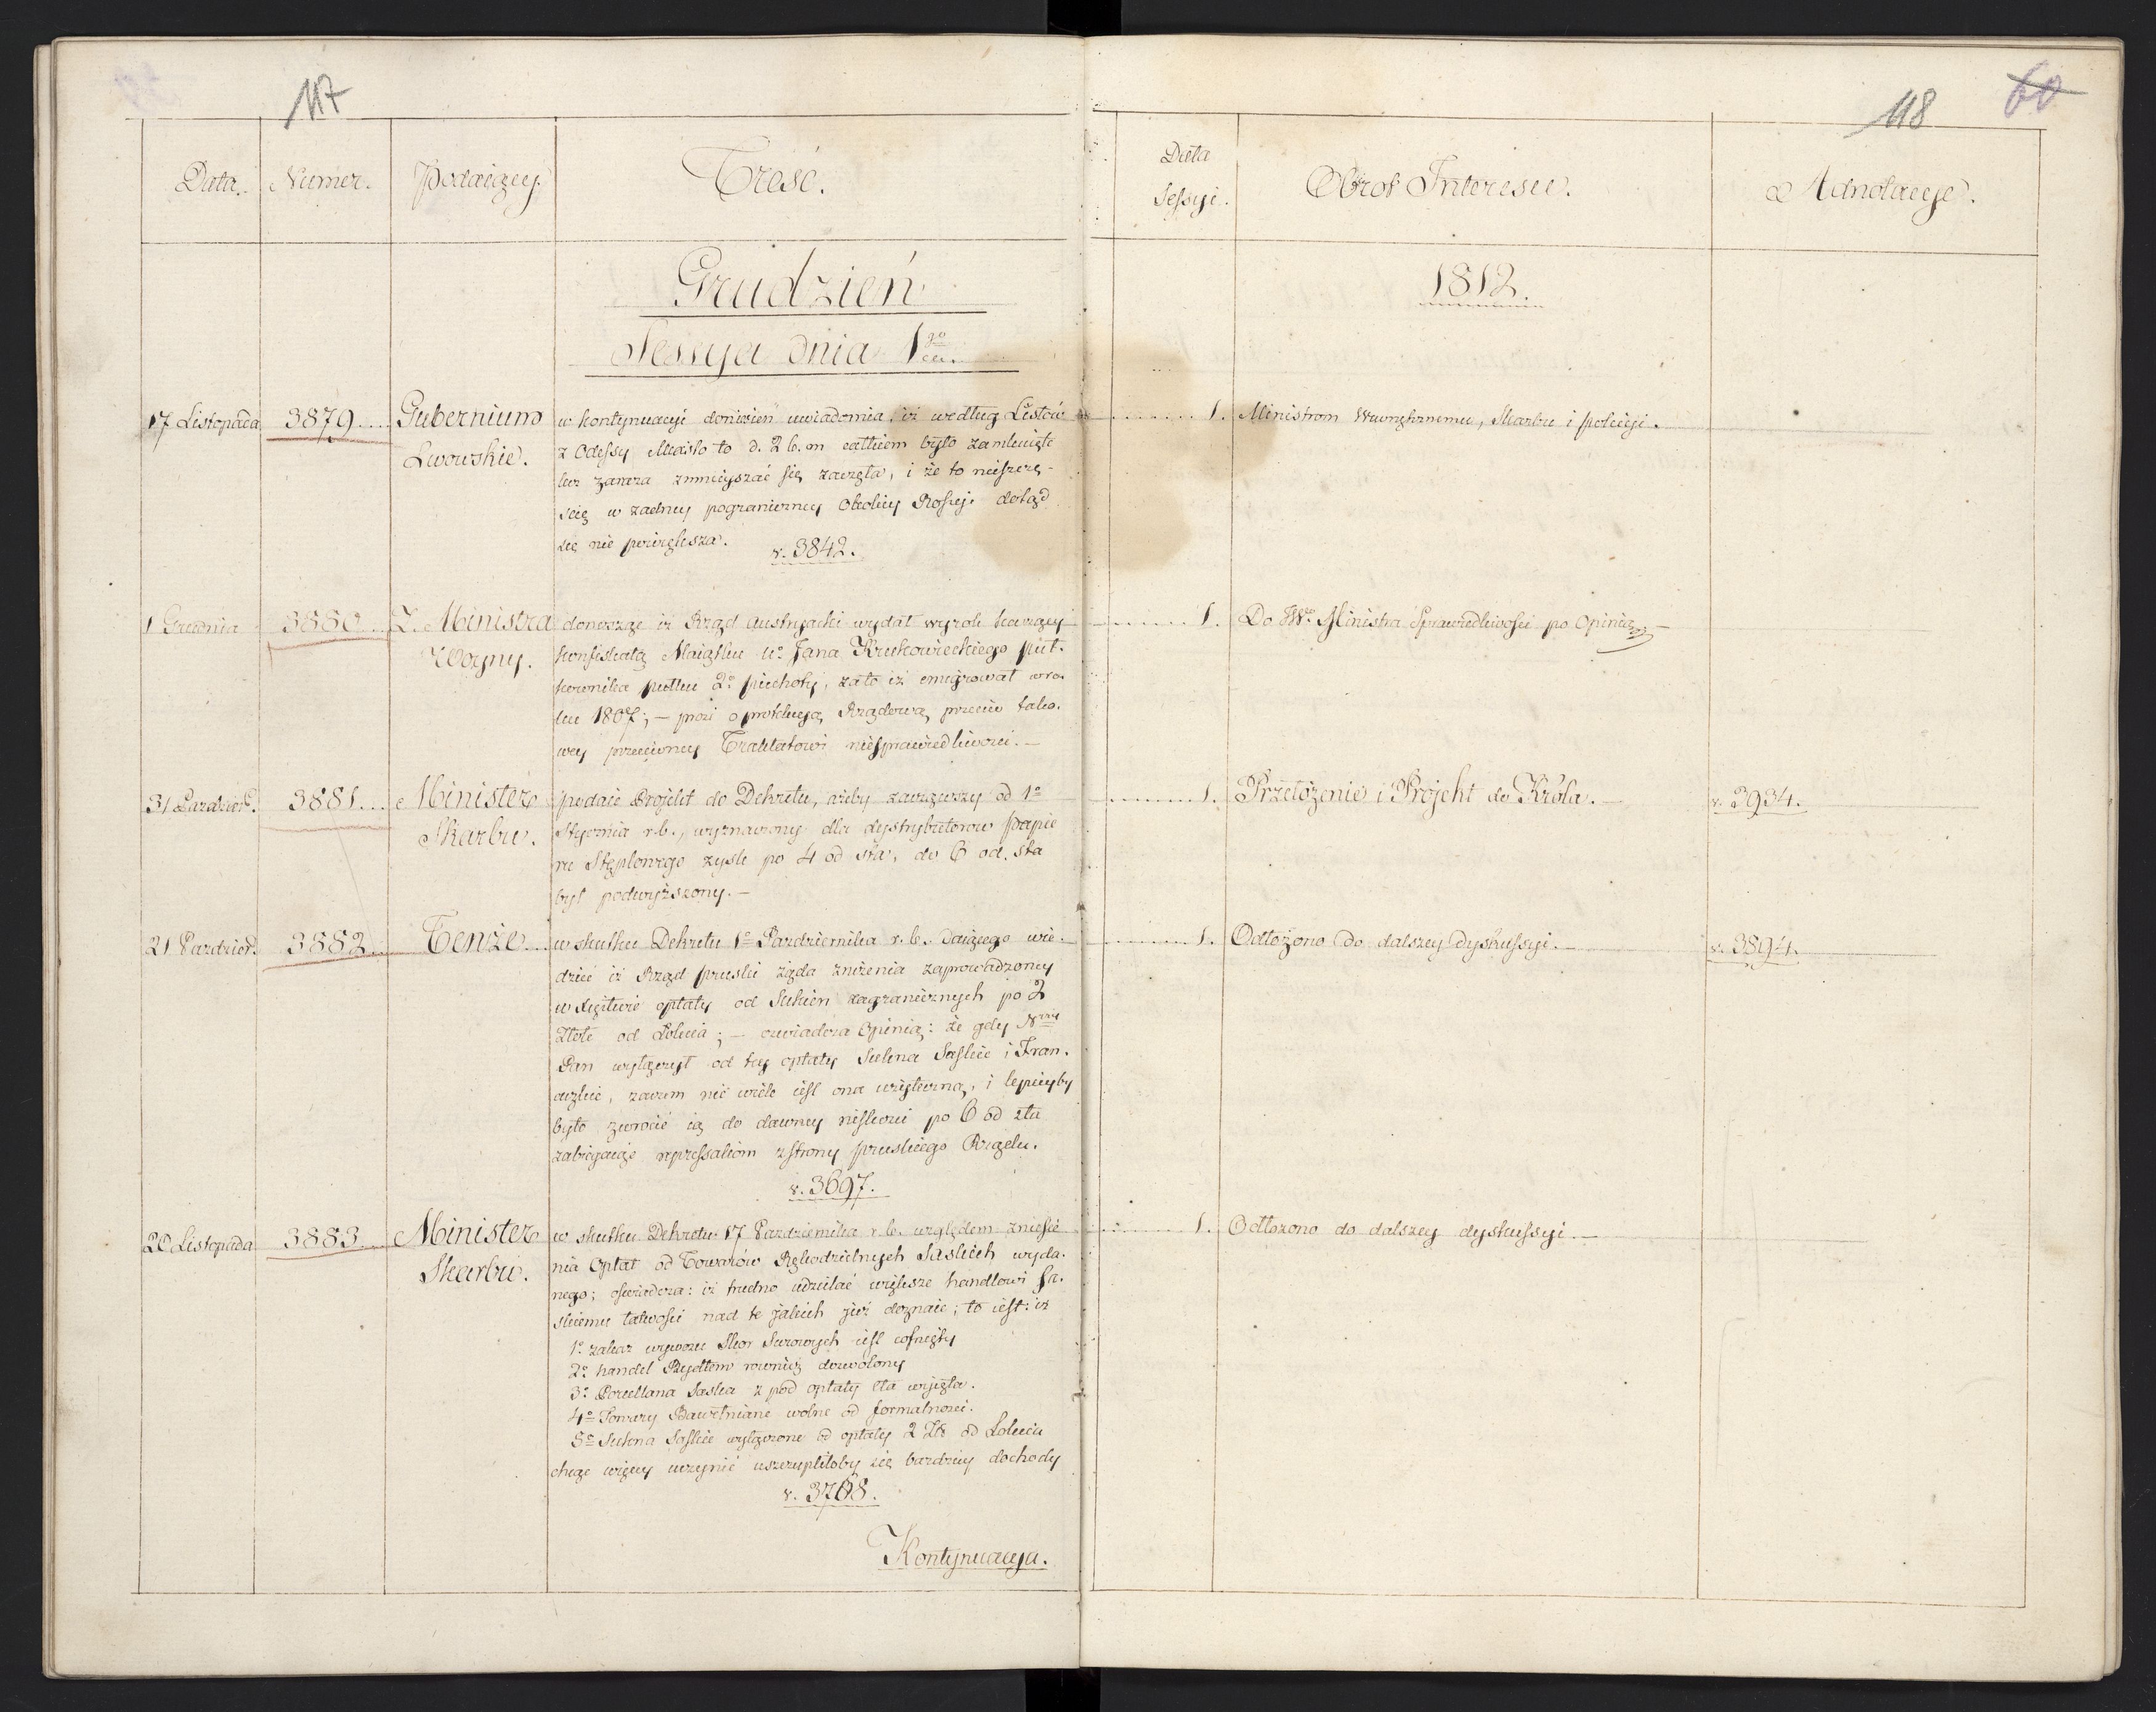 117
Data. Numer. Podaiący. Treść.
Grudzień
Sessya dnia 1go
17 Listopada 3879 Gubernium Lwowskie.
w kontynuacyi doniesień uwiadomia iż według Listów
z Odessy Miasto to d. 2 b. m całkiem było zamknięte
lecz zaraza zmnieyszać się zaczęła, i że to nieszczę-
ście w żadney pograniczney Okolicy Rossyi dotąd
się nie powiększa.
v. 3842.
1 Grudnia 3880 Z. Ministra Woyny.
donosząc iż Rząd Austryacki wydał wyrok
konfiskatę Maiątku Jana Krukowieckiego puł-
kownika pułku 2o piechoty, zato iż emigrował wro-
ku 1807; — prosi o protekcyą Rządową przeciw tako-
wey przeciwney Traktatowi niesprawiedliwości. —
31 Pazdzier. 3881 Minister Skarbu.
podaie Projekt do Dekretu, ażeby zacząwszy od 1o
Stycznia r. b., wyznaczony dla dystrybutorow Papie
ru Stęplowego zysk po 4 od sta, do 6 od sta
był podwyższony. —
21 Pazdzier. 3882 Tenże
w skutku Dekretu 1o Pazdziernika r. b. daiącego wie-
dzieć iż Rząd pruski żąda zniżenia zaprowadzoney
w Xięstwie opłaty od Sukien zagranicznych po 2
Złote od Łokcia; — oświadcza Opinią: że gdy
Pan wyłączył od tey opłaty Sukna Saskie i Fran-
cuzkie, zatem nie wiele iest ona użyteczną, i lepieyby
było zwrócić ią do dawney niskości po 6 od sta
zabiegaiąc repressaliom zstrony pruskiego Rządu.
v. 3697.
20 Listopada 3883 Minister Skarbu.
w skutku Dekretu 17 Pazdziernika r. b. względem zniesie
nia Opłat od Towarów Rękodzielnych Saskich wyda-
nego; oświadcza: iż trudno udzielać większe handlowi Sa-
skiemu łatwości nad te jakich już doznaie; to iest: iż
1o zakaz wywozu Skor Surowych iest cofnięty
2o handel Bydłem rownież dozwolony
3o Porcellana Saska z pod opłaty cła wyjęta.
4o Towary Bawełniane wolne od formalności.
5o Sukna Saskie wyłączone od opłaty 2 Zł od Łokcia
chcąc więcey uczynić uszczupliłoby się bardziey dochody
v. 3768.
Kontynuacya.
118 60
Data Sessyi. Obrot Interesu. Adnotacye.
1812.
1. Ministrom Wewnętrznemu, Skarbu i policyi.
1. Do Ministra Sprawiedliwości po Opinią
1. Przełożenie i Projekt do Króla. — v. 3934.
1. Odłożono do dalszey dyskussyi. — v. 3894.
1. Odłożono do dalszey dyskussyi. —